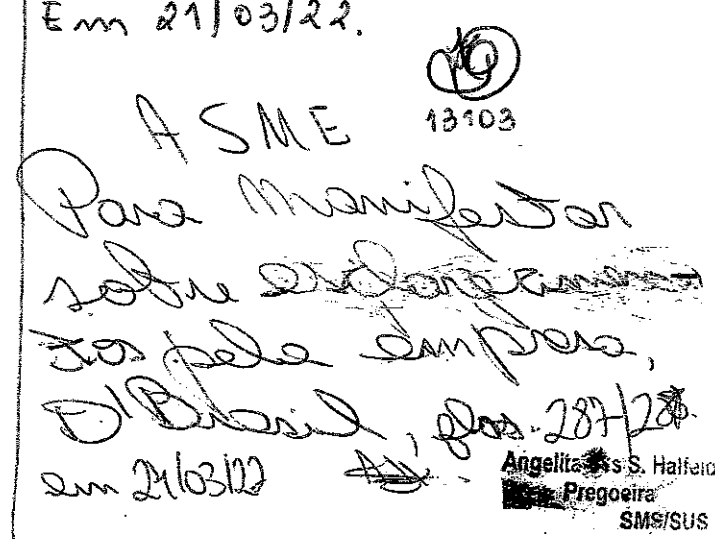 Em 21/03/22.
13103
A SME
Para Manifestar
sobre esclarecimen-
tos pela empresa,
D'Brasil, flos. 287/28
em 21/03/22
Angelita S. Halfeld
Pregoeira
SMS/SUS